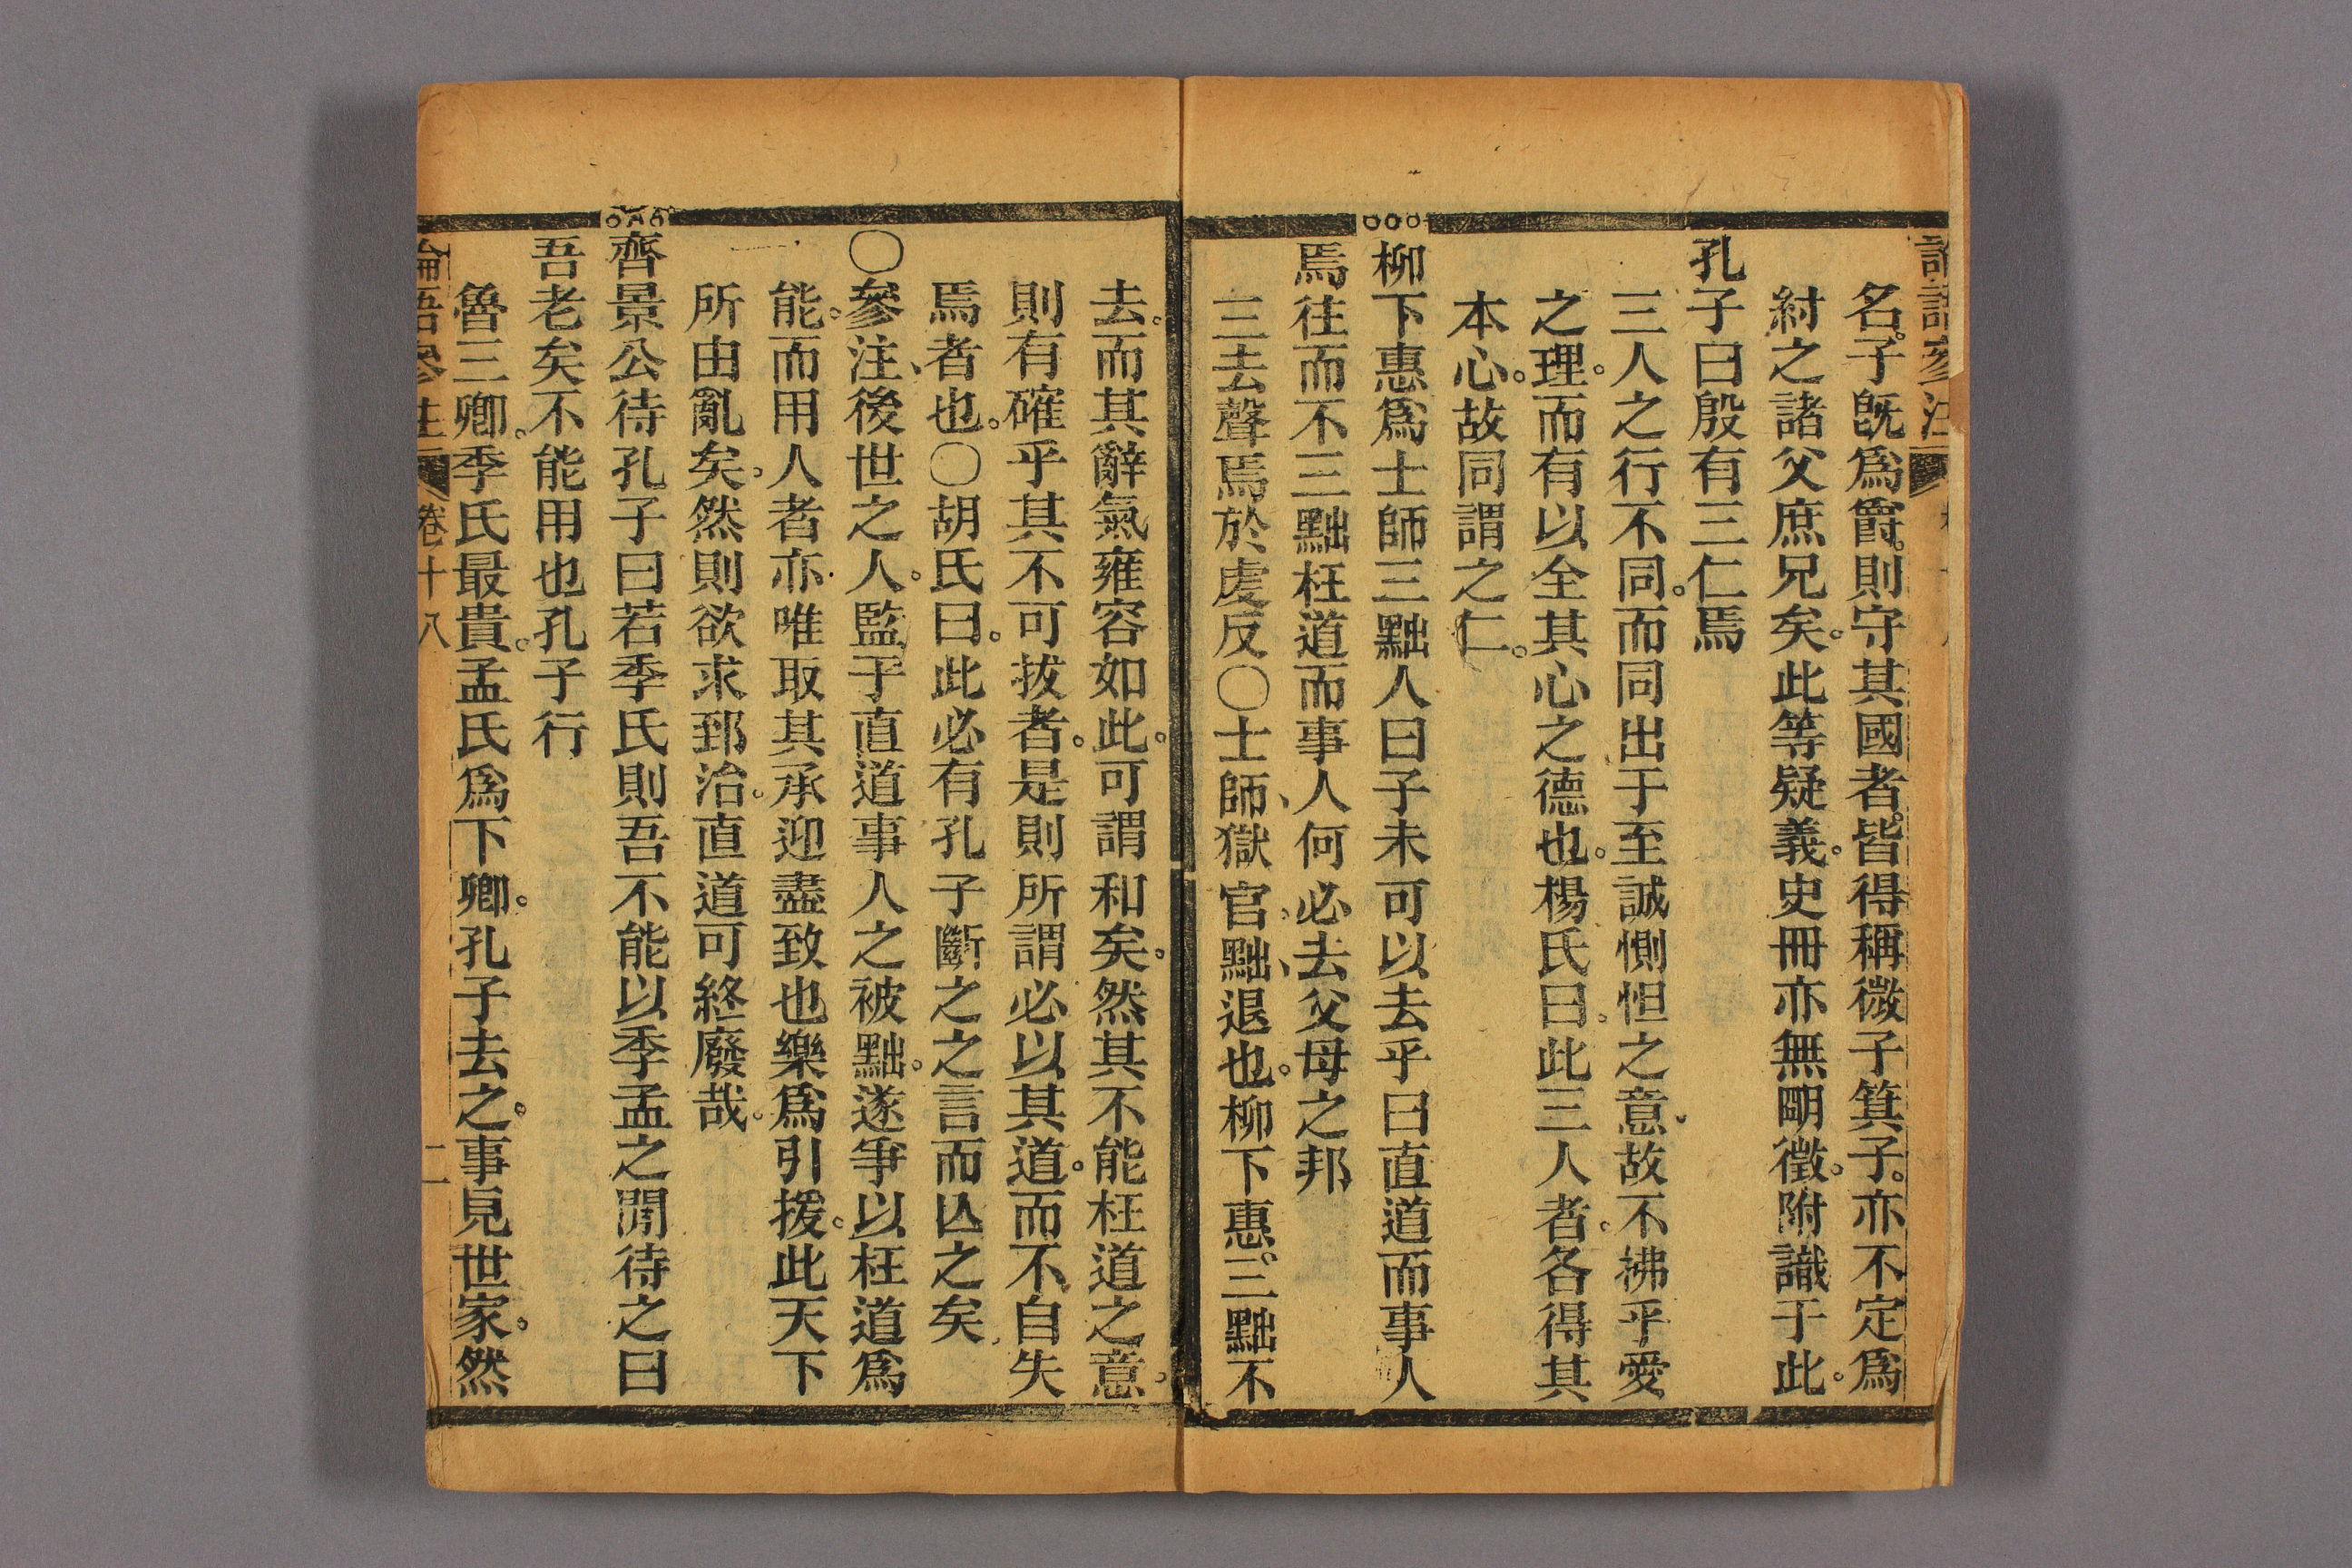 名。子旣爲爵。則守其國者。皆得稱微子箕子。亦不定爲
紂之諸父庶兄矣。此等疑義。史冊亦無明徵。附識于此。
孔子曰殷有三仁焉
三人之行不同。而同出于至誠惻怛之意。故不拂乎愛
之理。而有以全其心之德也。楊氏曰。此三人者。各得其
本心。故同謂之仁。
柳下惠爲士師三黜人曰子未可以去乎曰直道而事人
焉往而不三黜枉道而事人何必去父母之邦
三去聲焉於虔反〇士師、獄官。黜、退也。柳下惠。三黜不
去。而其辭氣雍容如此。可謂和矣。然其不能枉道之意。
則有確乎其不可拔者。是則所謂必以其道。而不自失
焉者也。〇胡氏曰。此必有孔子斷之之言而亾之矣
〇參注、後世之人。監于直道事人之被黜。遂爭以枉道爲
能。而用人者亦唯取其承迎盡致也樂爲引援。此天下
所由亂矣。然則欲求郅治。直道可終廢哉。
齊景公待孔子曰若季氏則吾不能以季孟之閒待之曰
吾老矣不能用也孔子行
魯三卿。季氏最貴。孟氏爲下卿。孔子去之。事見世家。然
論語參注 卷十八 二